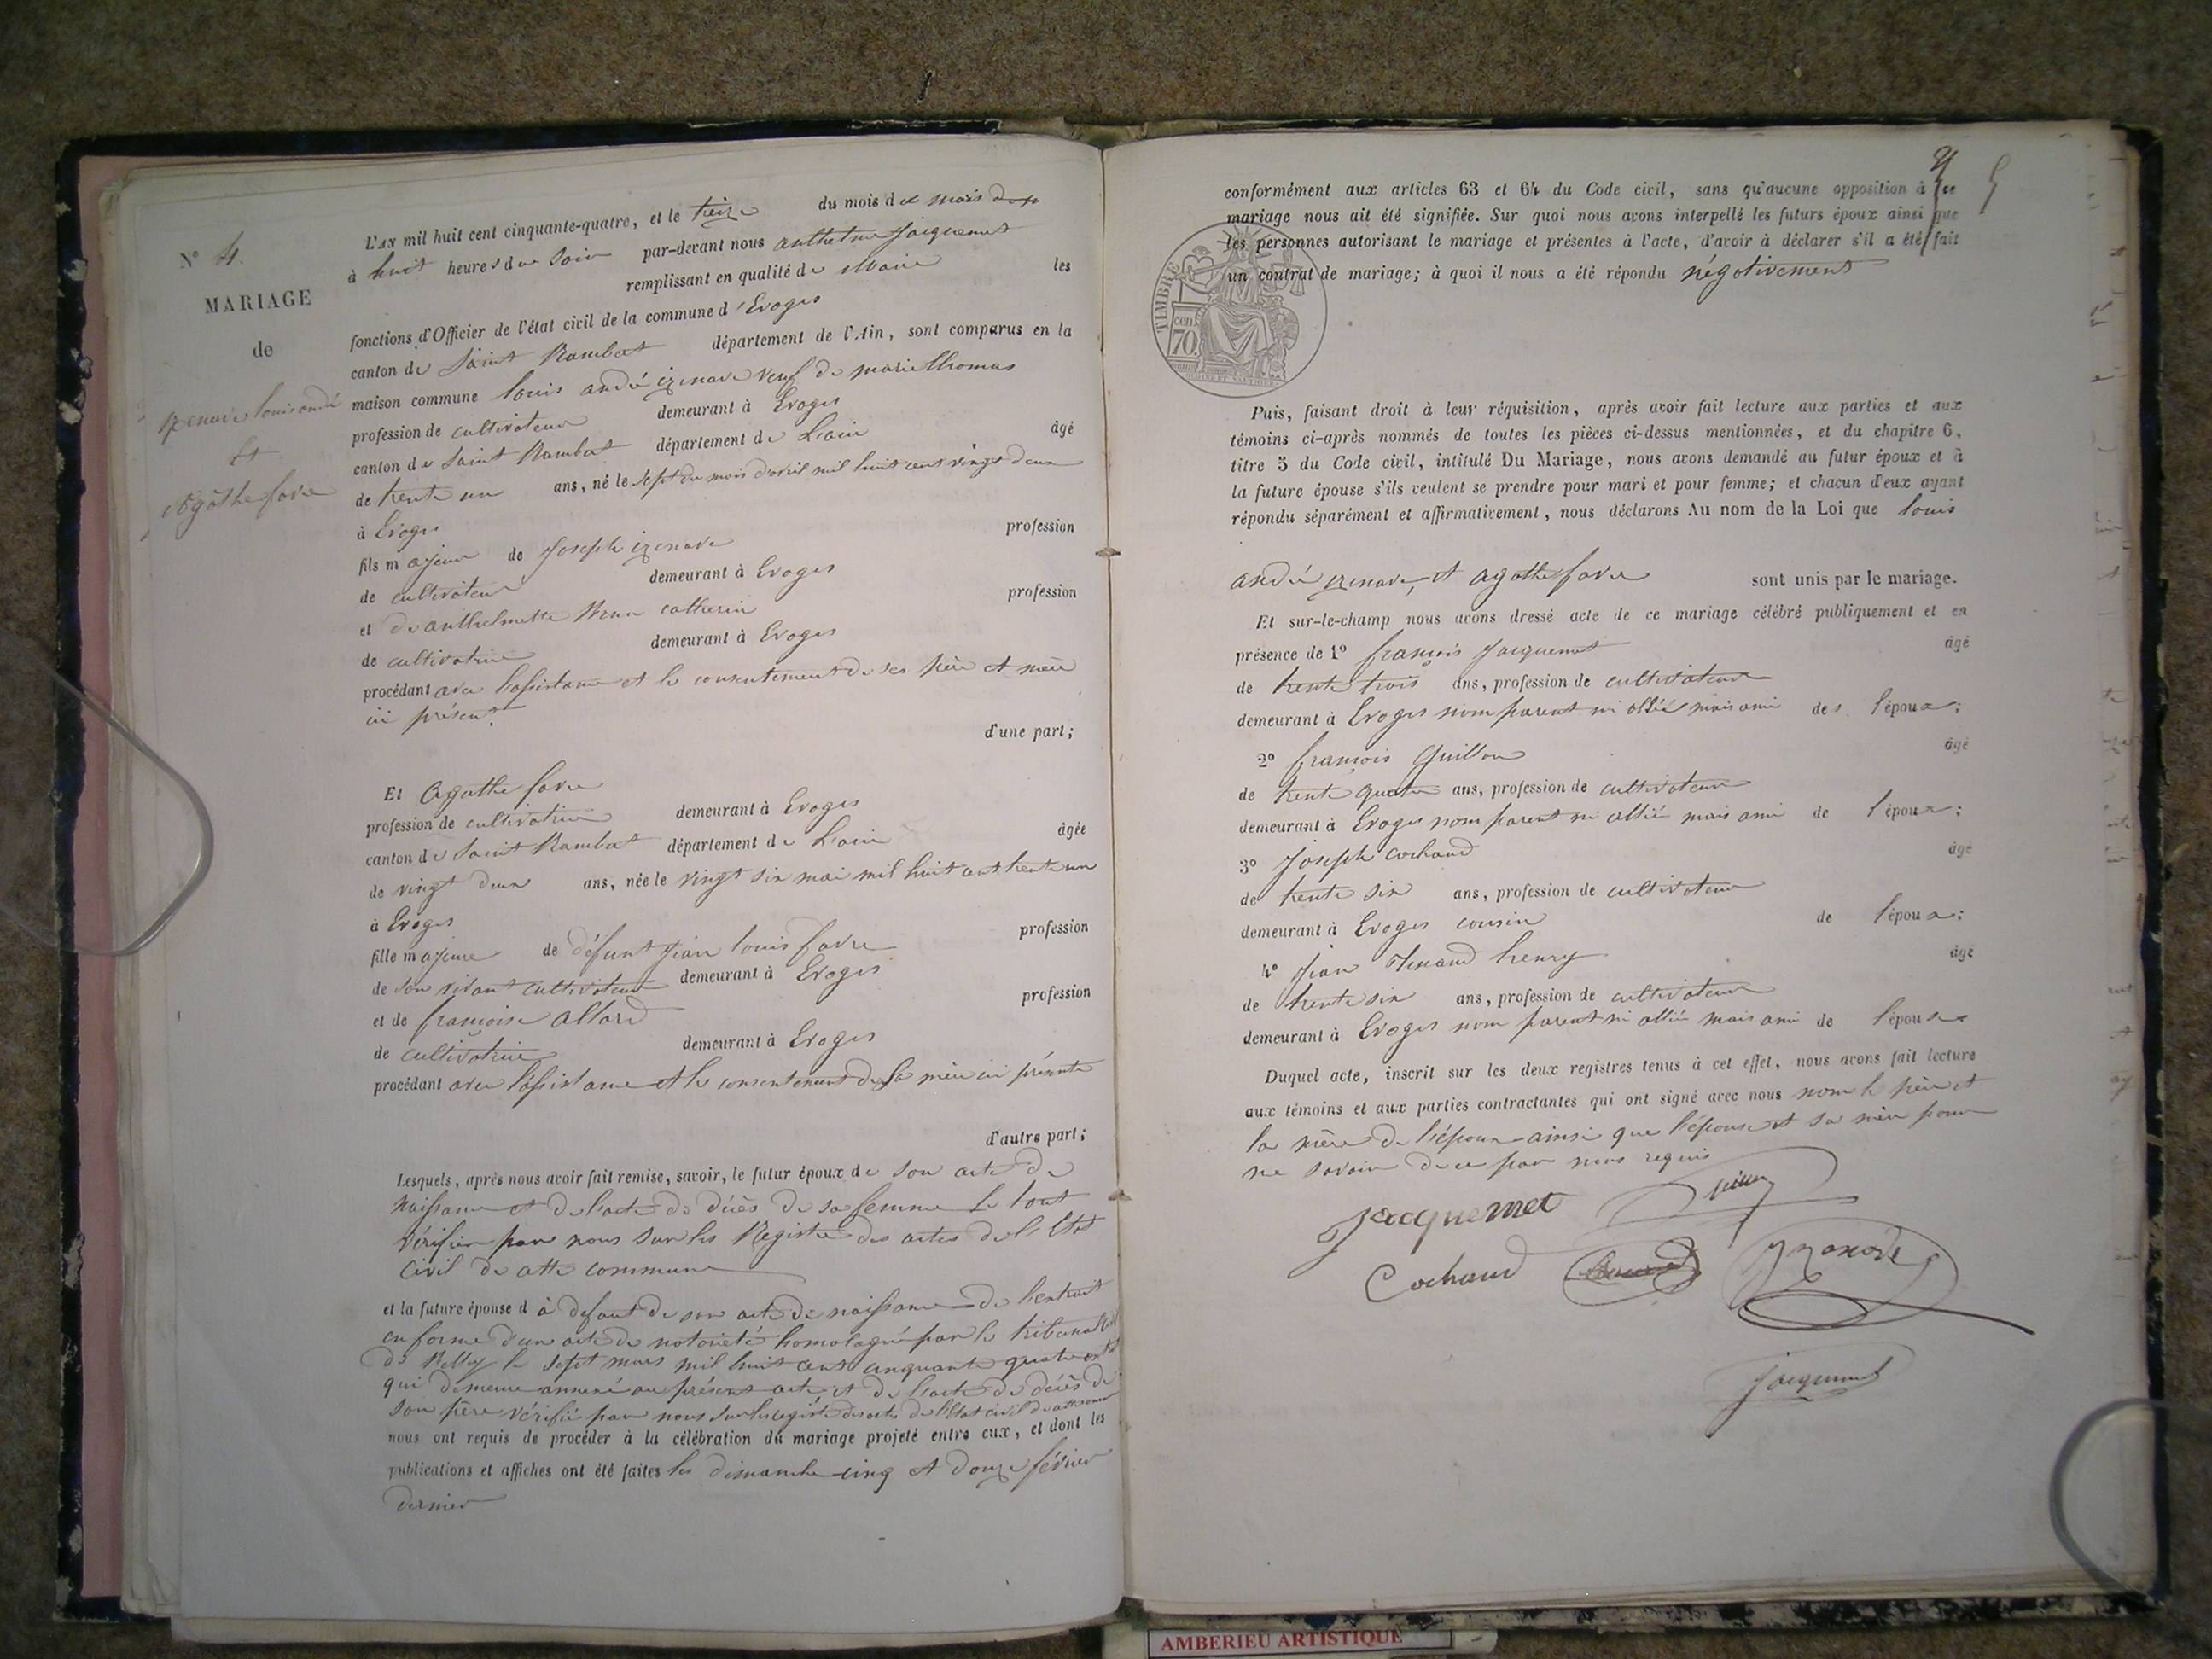 N° 4.
MARIAGE
de
izenave louis andré
et
Agathe favre
L'AN mil huit cent cinquante-quatre, et le treize du mois de mars
à huit heures du soir par-devant nous anthelme Jacquemet
remplissant en qualité de Maire les
fonctions d'Officier de l'état civil de la commune d'Evoges
canton de Saint Rambert département de l'Ain, sont comparus en la
maison commune louis andré izenave veuf de marie thomas
profession de cultivateur demeurant à Evoges
canton de Saint Rambert département de L'ain âgé
de trente un ans, né le sept du mois d'avril mil huit cent vingt deux
à Evoges
fils majeur de Joseph izenave profession
de cultivateur demeurant à Evoges
et de anthelmette catherin profession
de cultivatrice demeurant à Evoges
procédant avec l'assistance et le consentement de ses père et mère
ici présent
d'une part;
Et Agathe favre
profession de cultivatrice demeurant à Evoges
canton de Saint Rambert département de L'ain âgée
de vingt deux ans, née le vingt six mai mil huit cent trente un
à Evoges
fille majeure de défunt jean louis favre profession
de son vivant cultivateur demeurant à Evoges
et de françoise allard profession
de cultivatrice demeurant à Evoges
procédant avec l'assistance et le consentement de sa mère ici présente
d'autre part;
Lesquels, après nous avoir fait remise, savoir, le futur époux de son acte de
naissance et de l'acte de décès de sa femme le tout
vérifier par nous sur les Registre des actes de l'Etat
civil de cette commune
et la future épouse d à defaut de son acte de naissance de l'extrait
en forme d'un acte de notoriété homologué par le tribunal
de Belley le sept mars mil huit cent cinquante quatre
qui demeure annexé au présent acte et de l'acte de décès de
son père vérifié par nous sur les registre des actes de l'Etat civil de cette
nous ont requis de procéder à la célébration du mariage projeté entre eux, et dont les
publications et affiches ont été faites les dimanche cinq et douze février
dernier
conformément aux articles 63 et 64 du Code civil, sans qu'aucune opposition à ce
mariage nous ait été signifiée. Sur quoi nous avons interpellé les futurs époux ainsi que
les personnes autorisant le mariage et présentes à l'acte, d'avoir à déclarer s'il a été fait
un contrat de mariage; à quoi il nous a été répondu négativement
TIMBRE
70 cen.
Puis, faisant droit à leur réquisition, après avoir fait lecture aux parties et aux
témoins ci-après nommés de toutes les pièces ci-dessus mentionnées, et du chapitre 6,
titre 5 du Code civil, intitulé Du Mariage, nous avons demandé au futur époux et à
la future épouse s'ils veulent se prendre pour mari et pour femme; et chacun d'eux ayant
répondu séparément et affirmativement, nous déclarons Au nom de la Loi que louis
andré izenave, et agathe favre sont unis par le mariage.
Et sur-le-champ nous avons dressé acte de ce mariage célébré publiquement et en
présence de 1° françois Jacquemet âgé
de trente trois ans, profession de cultivateur
demeurant à Evoges nom parent ni alliée mais ami des l'époux;
2° françois Guillon âgé
de trente quatre ans, profession de cultivateur
demeurant à Evoges nom parent ni alliée mais ami de l'époux;
3° Joseph cochaud âgé
de trente six ans, profession de cultivateur
demeurant à Evoges cousin de l'époux;
4° Jean henry âgé
de trente six ans, profession de cultivateur
demeurant à Evoges nom parent ni alliée mais ami de l'époux
Duquel acte, inscrit sur les deux registres tenus à cet effet, nous avons fait lecture
aux témoins et aux parties contractantes qui ont signé avec nous nom le père et
la mère de l'époux ainsi que l'épouse et sa mère pour
ne savoir de ce par nous requis
Jacquemet
Cochaud
Jacquemet
AMBERIEU ARTISTIQUE